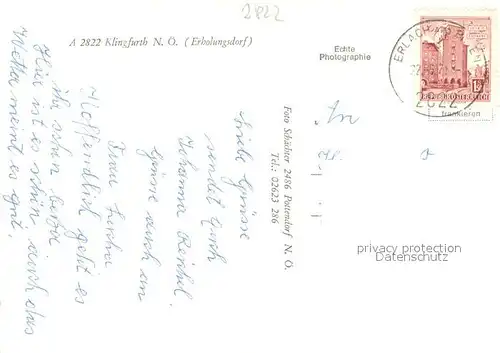 2822
A 2822 Klingfurth N. Ö. (Erholungsdorf)
Echte
Photographie
ERLACH
2822
REPUBLIK ÖSTERREICH
frankieren
Foto Schächter 2486 Pottendorf N. Ö.
Tel.: 02623 286
An
Liebe Grüsse
sendet Euch
Johanna
Grüsse auch an
Frau
Hoffendlich geht es
ihr schon besser
Hier ist es schön auch das
Wetter meint es gut.
privacy protection
Datenschutz